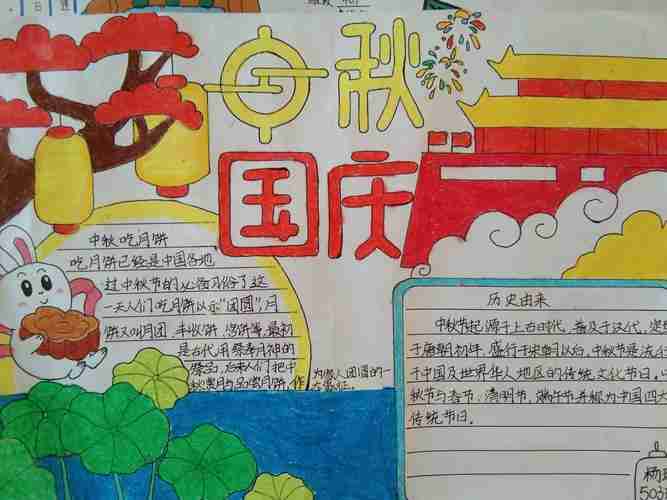 中秋
国庆
中秋吃月饼
吃月饼已经是中国各地
过中秋节的必备习俗了这
一天人们吃月饼以示"团圆",月
饼又叫月团、丰收饼、宫饼等,最初
是古代用祭奉月神的
祭品,后来人们把中
秋赏月与品尝月饼,作
为家人团圆的一
大象征。
历史由来
中秋节起源于上古时代,普及于汉代,定
于唐朝初年,盛行于宋朝以后,中秋节是流行
于中国及世界华人地区的传统文化节日,
秋节与春节、清明节、端午节并称为中国四大
传统节日。
杨
503